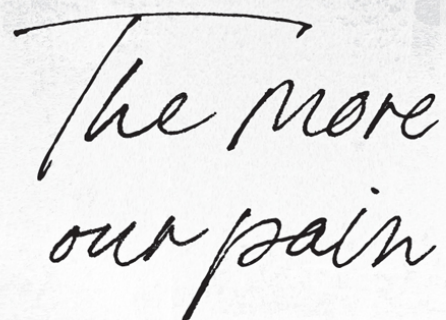 The more
our pain